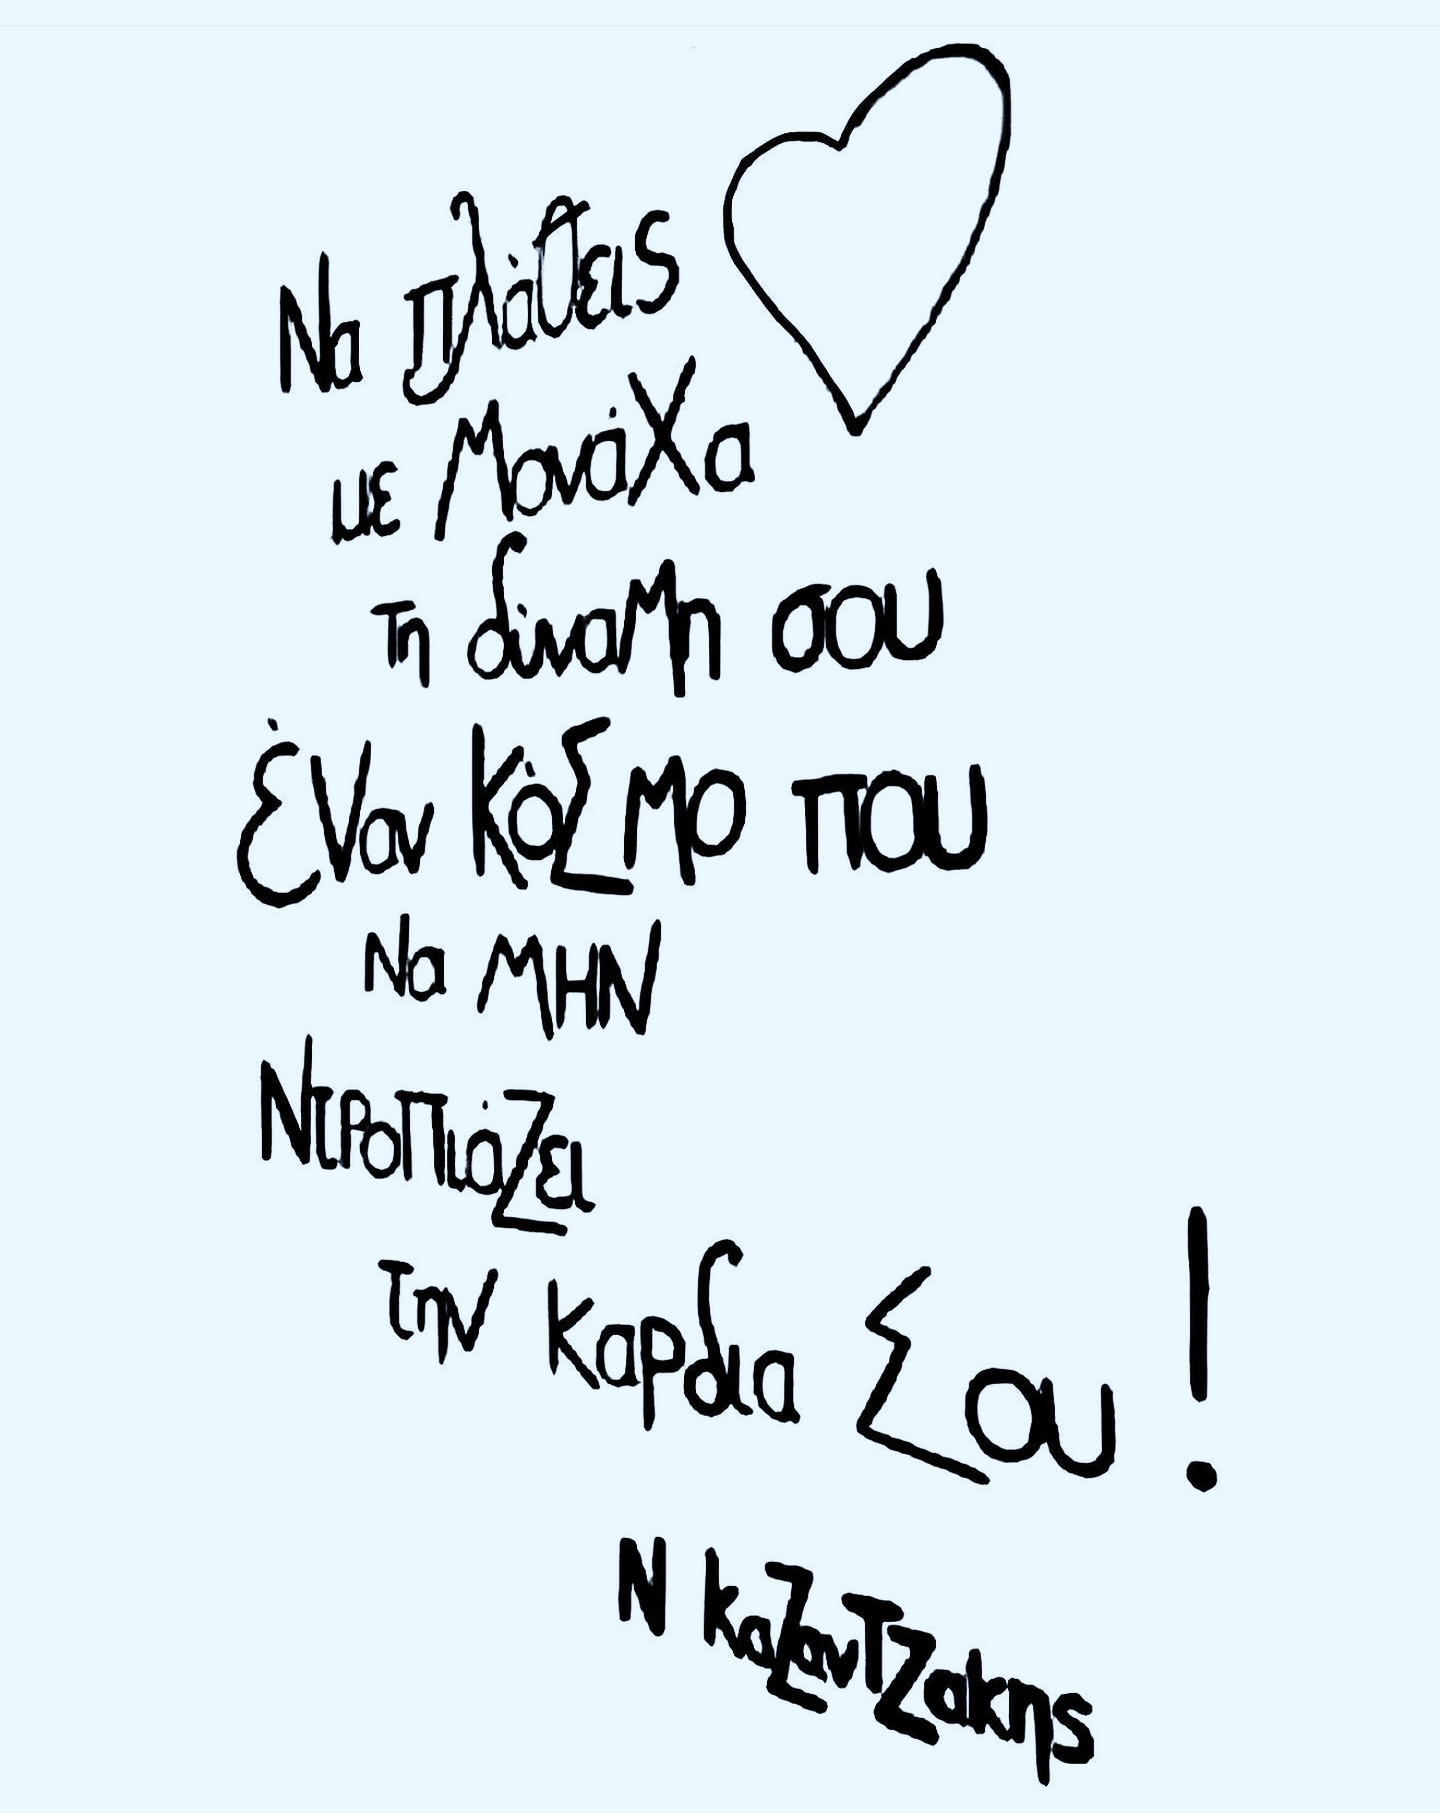 Να πλάθεις
με ΜονάΧα
τη δύναΜη σου
έναν ΚόΣΜο που
Να ΜΗΝ
ΝτΡοΠιάΖει
την καρδια Σου!
Ν καΖανΤΖακης